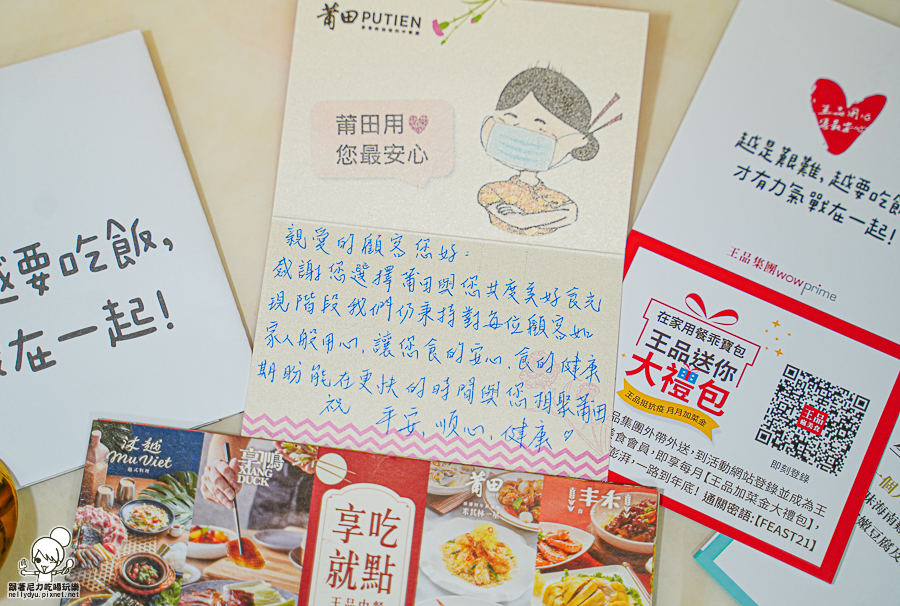 莆田PUTIEN
莆田用
您最安心
親愛的顧客您好：
感謝您選擇莆田與您共度美好食光
現階段我們仍秉持對每位顧客如
家人般用心，讓您食的安心、食的健康
期盼能在更快的時間與您相聚莆田
祝 平安、順心、健康♡
越要吃飯，
在一起！
王品用心
越是艱難，越要吃飯
才有力氣戰在一起！
王品集團wowprime
在家用餐乖寶包
王品送你
大禮包
王品挺抗疫 月月加菜金
王品
瘋美食
即刻登錄
品集團外帶外送，到活動網站登錄並成為王
美食會員，即享每月【王品加菜金大禮包】，
澎湃，一路到年底！通關密語：【FEAST21】
沐越
MUVIET
越式料理
享鴨
XIANG
DUCK
享吃
就點
王品中餐
莆田
丰禾
一個人
味海南雞
嫩豆腐及
跟著尼力吃喝玩樂
nellydyu.pixnet.net